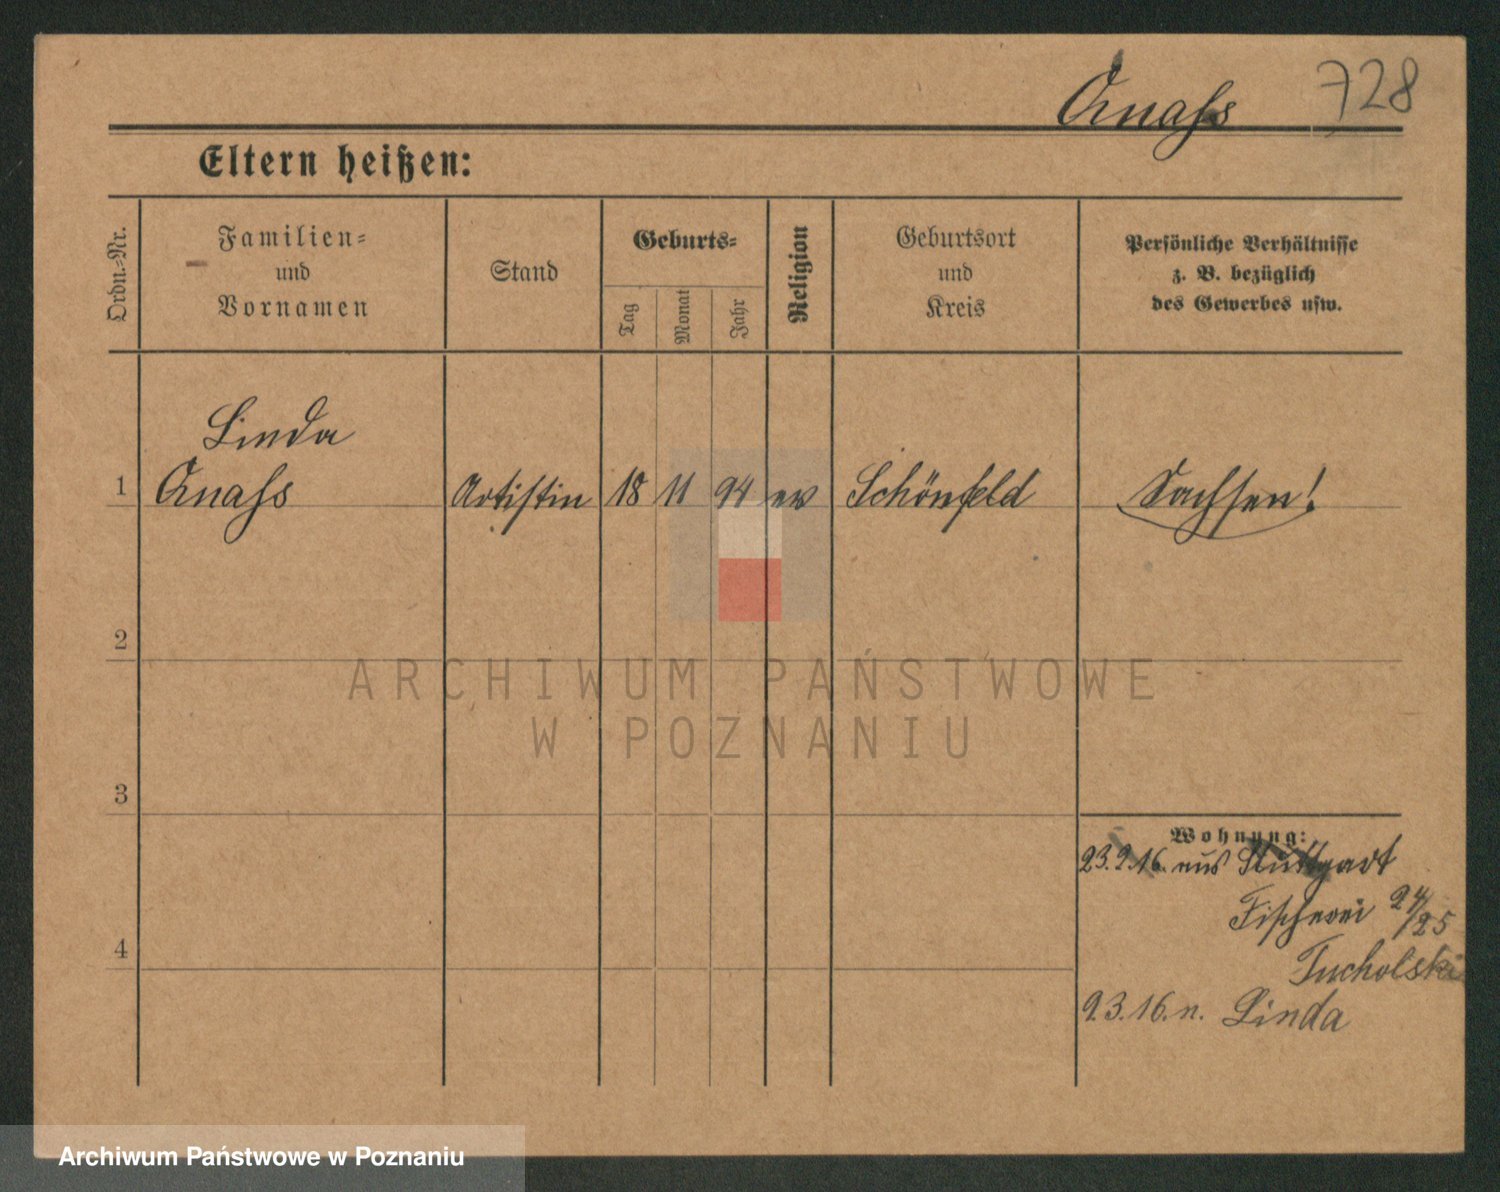 Anahs 728
Eltern heißen:
Ordn.-Nr.
Familien-
und
Vornamen
Stand
Geburts-
Tag
Monat
Jahr
Religion
Geburtsort
und
Kreis
Persönliche Verhältnisse
z. B. bezüglich
des Gewerbes usw.
Linda
1 Anahs Artistin 18 11 94 ev Schönfeld Sachsen!
2
3
4
Wohnung:
23.2.16. aus Stuttgart
Fischerei 24/25
Tucholski
2.3.16. n. Linda
ARCHIWUM PAŃSTWOWE
W POZNANIU
Archiwum Państwowe w Poznaniu